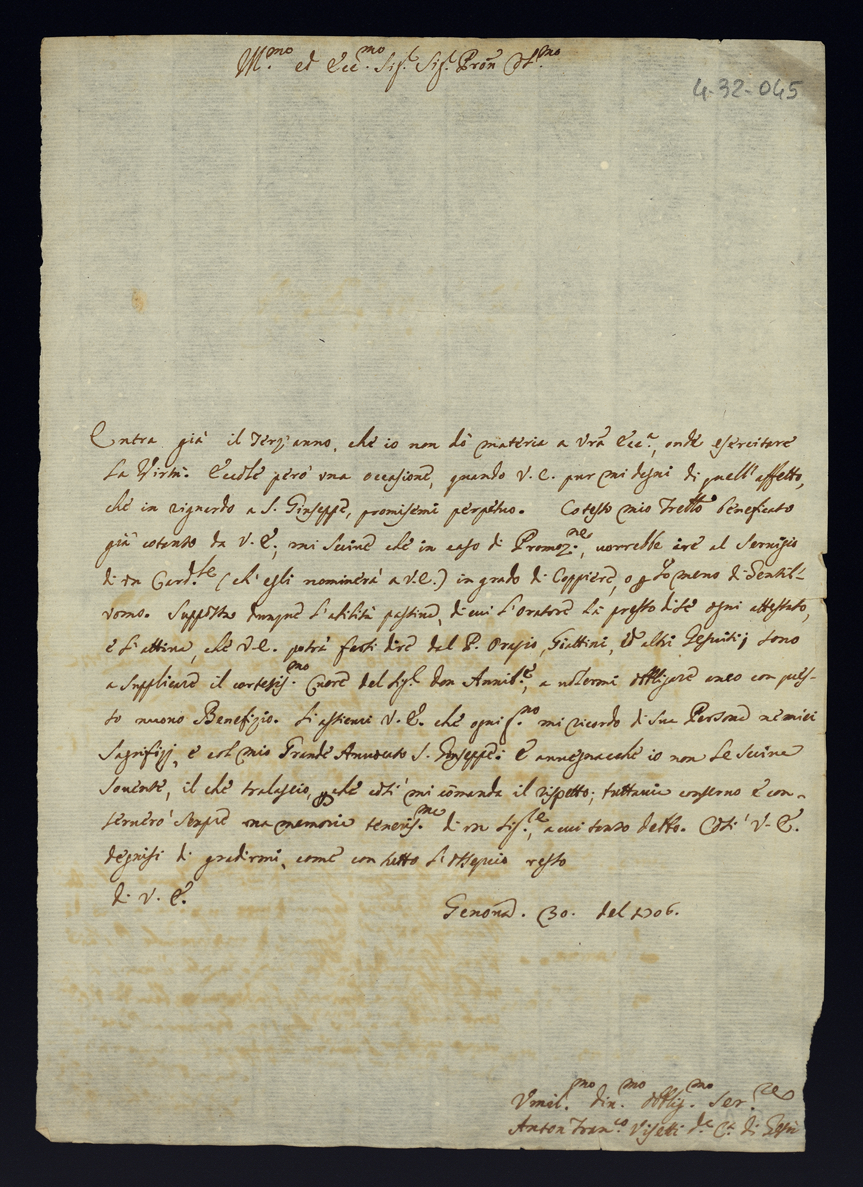 Ill.mo ed Ecc.mo Sig.r Sig.r Pron Col.mo
4-32-045
Entra già il terz'anno, che io non dò materia a Vra Ecc.a, onde esercitare
la Virtù. Eccole però una occasione, quando V.E. pur mi degni di quell'affetto,
che in riguardo a S. Giuseppe, promisemi perpetuo. Cotesto mio Frello beneficato
già cotanto da V.E., mi scrive che in caso di Promoz.ne, vorrebbe ire al servigio
di un Card.le (ch'egli nominerà a V.E.) in grado di Coppiere, o p lo meno di Gentil-
uomo. Supposta dunque l'abilità, di cui l'Oratore ha presto dite ogni attestato,
e l'attiva, che V.E. potrà farsi dire dal P. Orazio, Giattini, ed altri Gesuiti; sono
a supplicare il cortesiss.mo Cuore del Sig.r Don Annib.e, a volermi obbligare anco con ques-
to nuovo Benefizio. Si assicuri V.E. che ogni g.no mi ricordo di sua Persona ne' miei
Sagrifizj, e col mio Grande Avvocato S. Giuseppe. E avvegnacchè io non le scriva
sovente, il che tralascio, pche così mi comanda il rispetto; tuttavia conservo e con-
serverò sempre una memoria teneriss.ma di un Sig.re, a cui tanto debbo. Così V.E.
degnisi di gradirmi, come con tutto l'ossequio resto
di V.E.
Genova. 30. del 1706.
Umil.mo div.mo obblig.mo Ser.re
Anton Fran.co Viselli d.a C. di Gesù